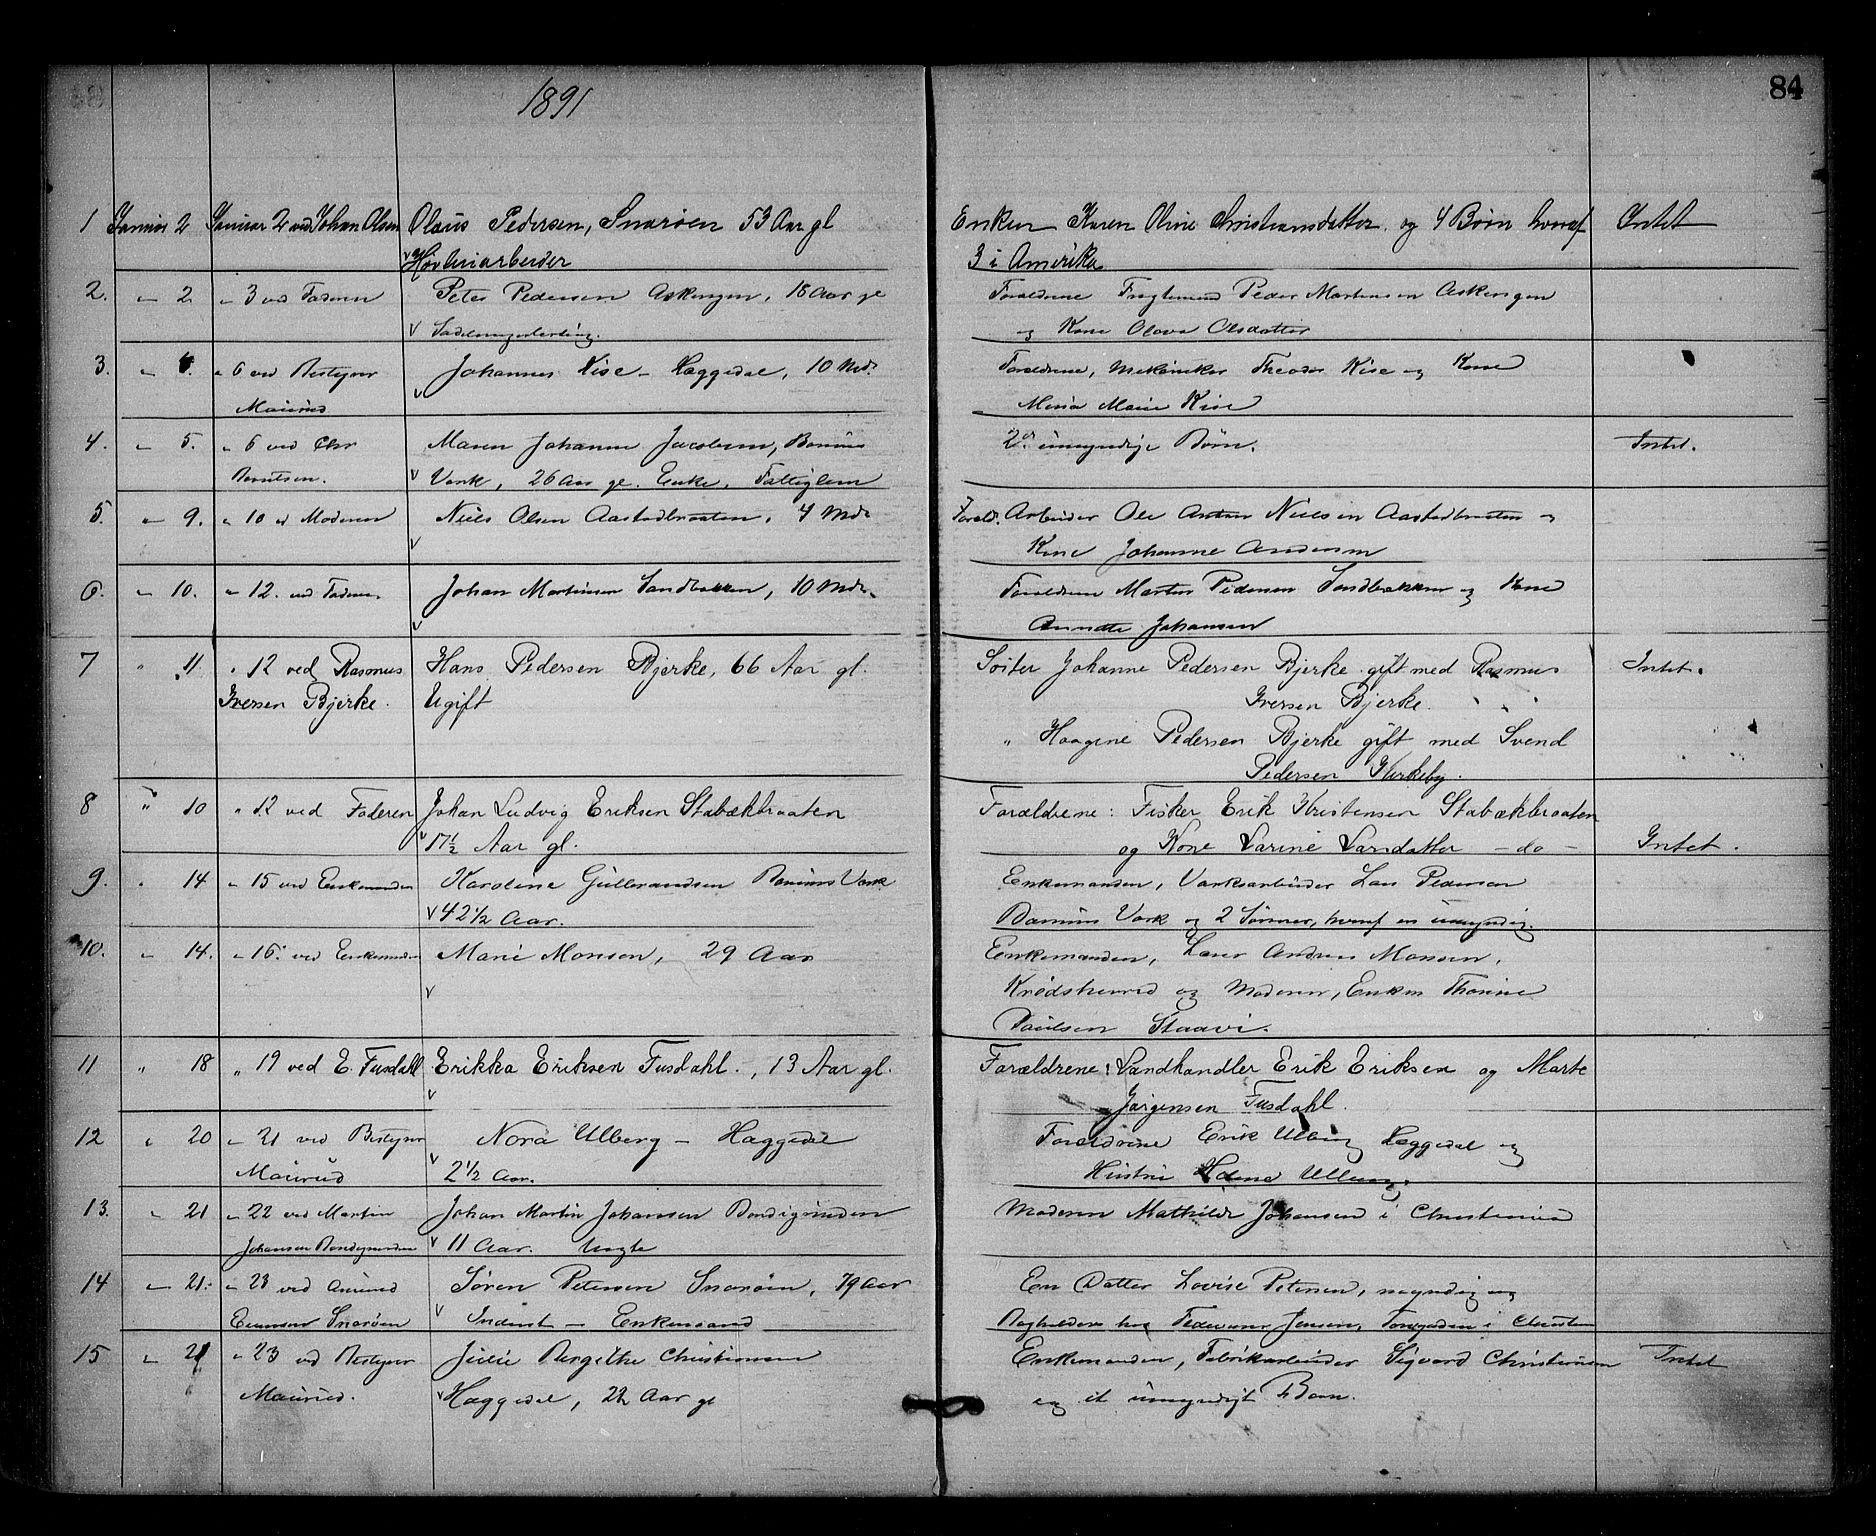 1891
84
1 Januar 2 Januar 2 ved Johan Olsen Olaus Pedersen, Snarøen 53 Aar gl Enken Karen Oline Christiansdatter og 4 Børn hvoraf Intet
Høvleriarbeider 3 i Amerika
2. " 2 " 3 ved Faderen Peter Pedersen Askengen, 18 Aar gl Forældrene Fragtemand Peder Martinsen Askengen
og Kone Olava Olsdatter
3. " 4. " 6 ved Bestyrer Johannes Kise - Hæggedal, 10 Mdr. Forældrene, Mekaniker Theodor Kise og Kone
Maurud Marie Kise
4. " 5. " 6 ved Chr Maren Johanne Jacobsen, Bærums 2 umyndige Børn. Intet.
Berntsen. Værk, 26 Aar gl. Enke, Fattiglem
5. " 9. " 10 v Moderen Niels Olsen Aastadbraaten, 4 Mdr Foræld. Arbeider Ole Anton Nielsen Aastadbraaten og
Kone Johanne Andersen
6. " 10. " 12. ved Faderen Johan Martinsen Sandbakken, 10 Mdr. Forældrene Martin Pedersen Sandbakken og Kone
Annette Johansen
7 " 11 " 12 ved Rasmus Hans Pedersen Bjerke, 66 Aar gl. Søster Johanne Pedersen Bjerke gift med Rasmus Intet.
Iversen Bjerke. Ugift Iversen Bjerke.
" Haagine Pedersen Bjerke gift med Svend
Pedersen Kirkeby.
8 " 10 " 12 ved Faderen Johan Ludvig Eriksen Stabækbraaten Forældrene: Fisker Erik Kristensen Stabækbraaten
17½ Aar gl. og Kone Larine Larsdatter - do - Intet.
9. " 14 " 15 ved Enkemanden Karoline Gulbrandsen Bærums Værk Enkemanden, Værksarbeider Lars Pedersen
42½ Aar. Bærums Værk og 2 Sønner, hvoraf en umyndig.
10. " 14. " 16. ved Enkemanden Marie Monsen, 29 Aar Enkemanden, Andreas Monsen,
Krødsherred og Moderen, Enken Thorine
Paulsen Staavi.
11 " 18 " 19 ved E. Fusdahl Erikka Eriksen Fusdahl, 13 Aar gl. Forældrene: Landhandler Erik Eriksen og Marte
Jørgensen Fusdahl.
12 " 20 " 21 ved Bestyrer Nora Ulberg - Hæggedal Forældrene Erik Ulberg Hæggedal og
Maurud 2½ Aar. Hustru Ulberg.
13. " 21 " 22 ved Martin Johan Martin Johansen Bondigrinden Moderen Mathilde Johansen i Christiania
Johansen Bondigrinden 11 Aar. Uægte
14 " 21. " 23 ved Søren Petersen Snarøen, 79 Aar En Datter Lovise Petersen, myndig og
Snarøen Inderst - Enkemand hos Jensen, i Christiania
15 " 21 " 23 ved Bestyrer Julie Bergithe Christiansen Enkemanden, Fabrikarbeider Sigvard Christiansen Intet
Maurud. Hæggedal, 22 Aar gl og et umyndigt Barn.